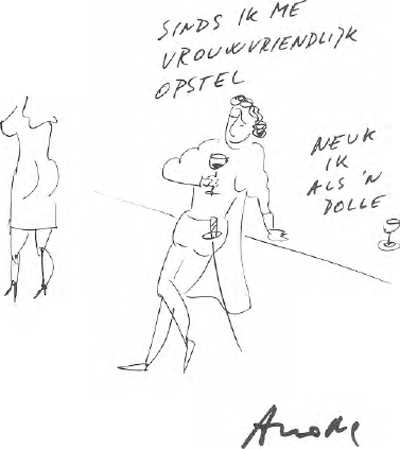 SINDS IK ME
VROUWVRIENDLIJK
OPSTEL
NEUK
IK
ALS 'N
DOLLE